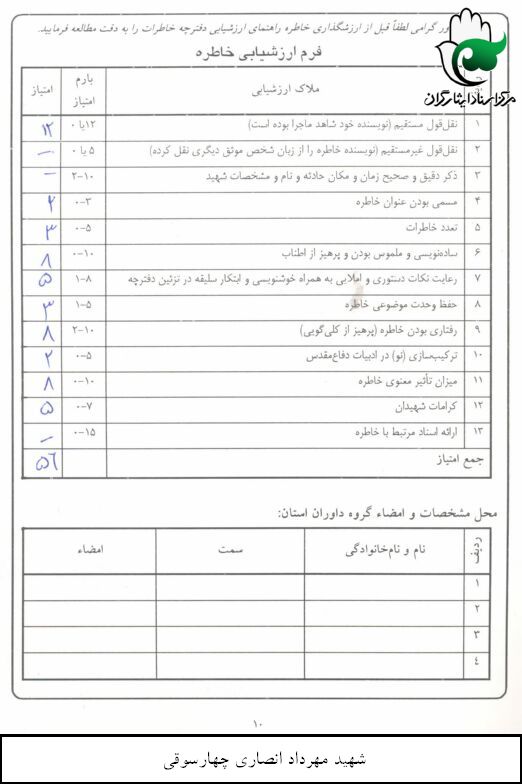 ور گرامی لطفاً قبل از ارزشگذاری خاطره راهنمای ارزشیابی دفترچه خاطرات را به دقت مطالعه فرمایید.
مرکز اسناد ایثارگران
فرم ارزشیابی خاطره
ملاک ارزشیابی بارم امتیاز امتیاز
۱ نقل‌قول مستقیم (نویسنده خود شاهد ماجرا بوده است) ۱۲ یا ۰ ۱۲
۲ نقل‌قول غیرمستقیم (نویسنده خاطره را از زبان شخص موثق دیگری نقل کرده) ۵ یا ۰ –
۳ ذکر دقیق و صحیح زمان و مکان حادثه و نام و مشخصات شهید ۲-۱۰ –
۴ مسمی بودن عنوان خاطره ۰-۳ ۲
۵ تعدد خاطرات ۰-۵ ۳
۶ ساده‌نویسی و ملموس بودن و پرهیز از اطناب ۰-۱۰ ۸
۷ رعایت نکات دستوری و املایی به همراه خوشنویسی و ابتکار سلیقه در تزئین دفترچه ۱-۸ ۵
۸ حفظ وحدت موضوعی خاطره ۱-۵ ۳
۹ رفتاری بودن خاطره (پرهیز از کلی‌گویی) ۲-۱۰ ۸
۱۰ ترکیب‌سازی (نو) در ادبیات دفاع‌مقدس ۰-۵ ۲
۱۱ میزان تأثیر معنوی خاطره ۰-۱۰ ۸
۱۲ کرامات شهیدان ۰-۷ ۵
۱۳ ارائه اسناد مرتبط با خاطره ۰-۱۵ –
جمع امتیاز ۵۶
محل مشخصات و امضاء گروه داوران استان:
ردیف نام و نام‌خانوادگی سمت امضاء
۱
۲
۳
۴
۱۰
شهید مهرداد انصاری چهارسوقی